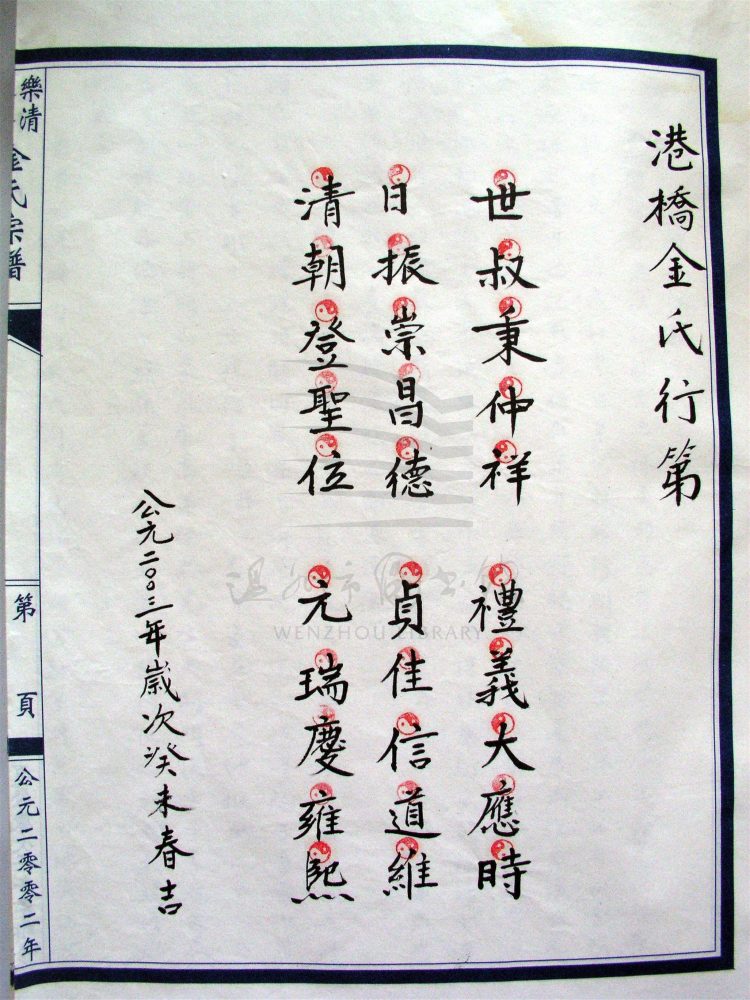 港橋金氏行第
世叔秉仲祥 禮義大應時
日振崇昌德 貞佳信道維
清朝登聖位 元瑞慶雍熙
公元二00三年歲次癸未春吉
樂清 金氏宗譜 第 頁 公元二零零二年
溫州市图书馆
WENZHOU LIBRARY